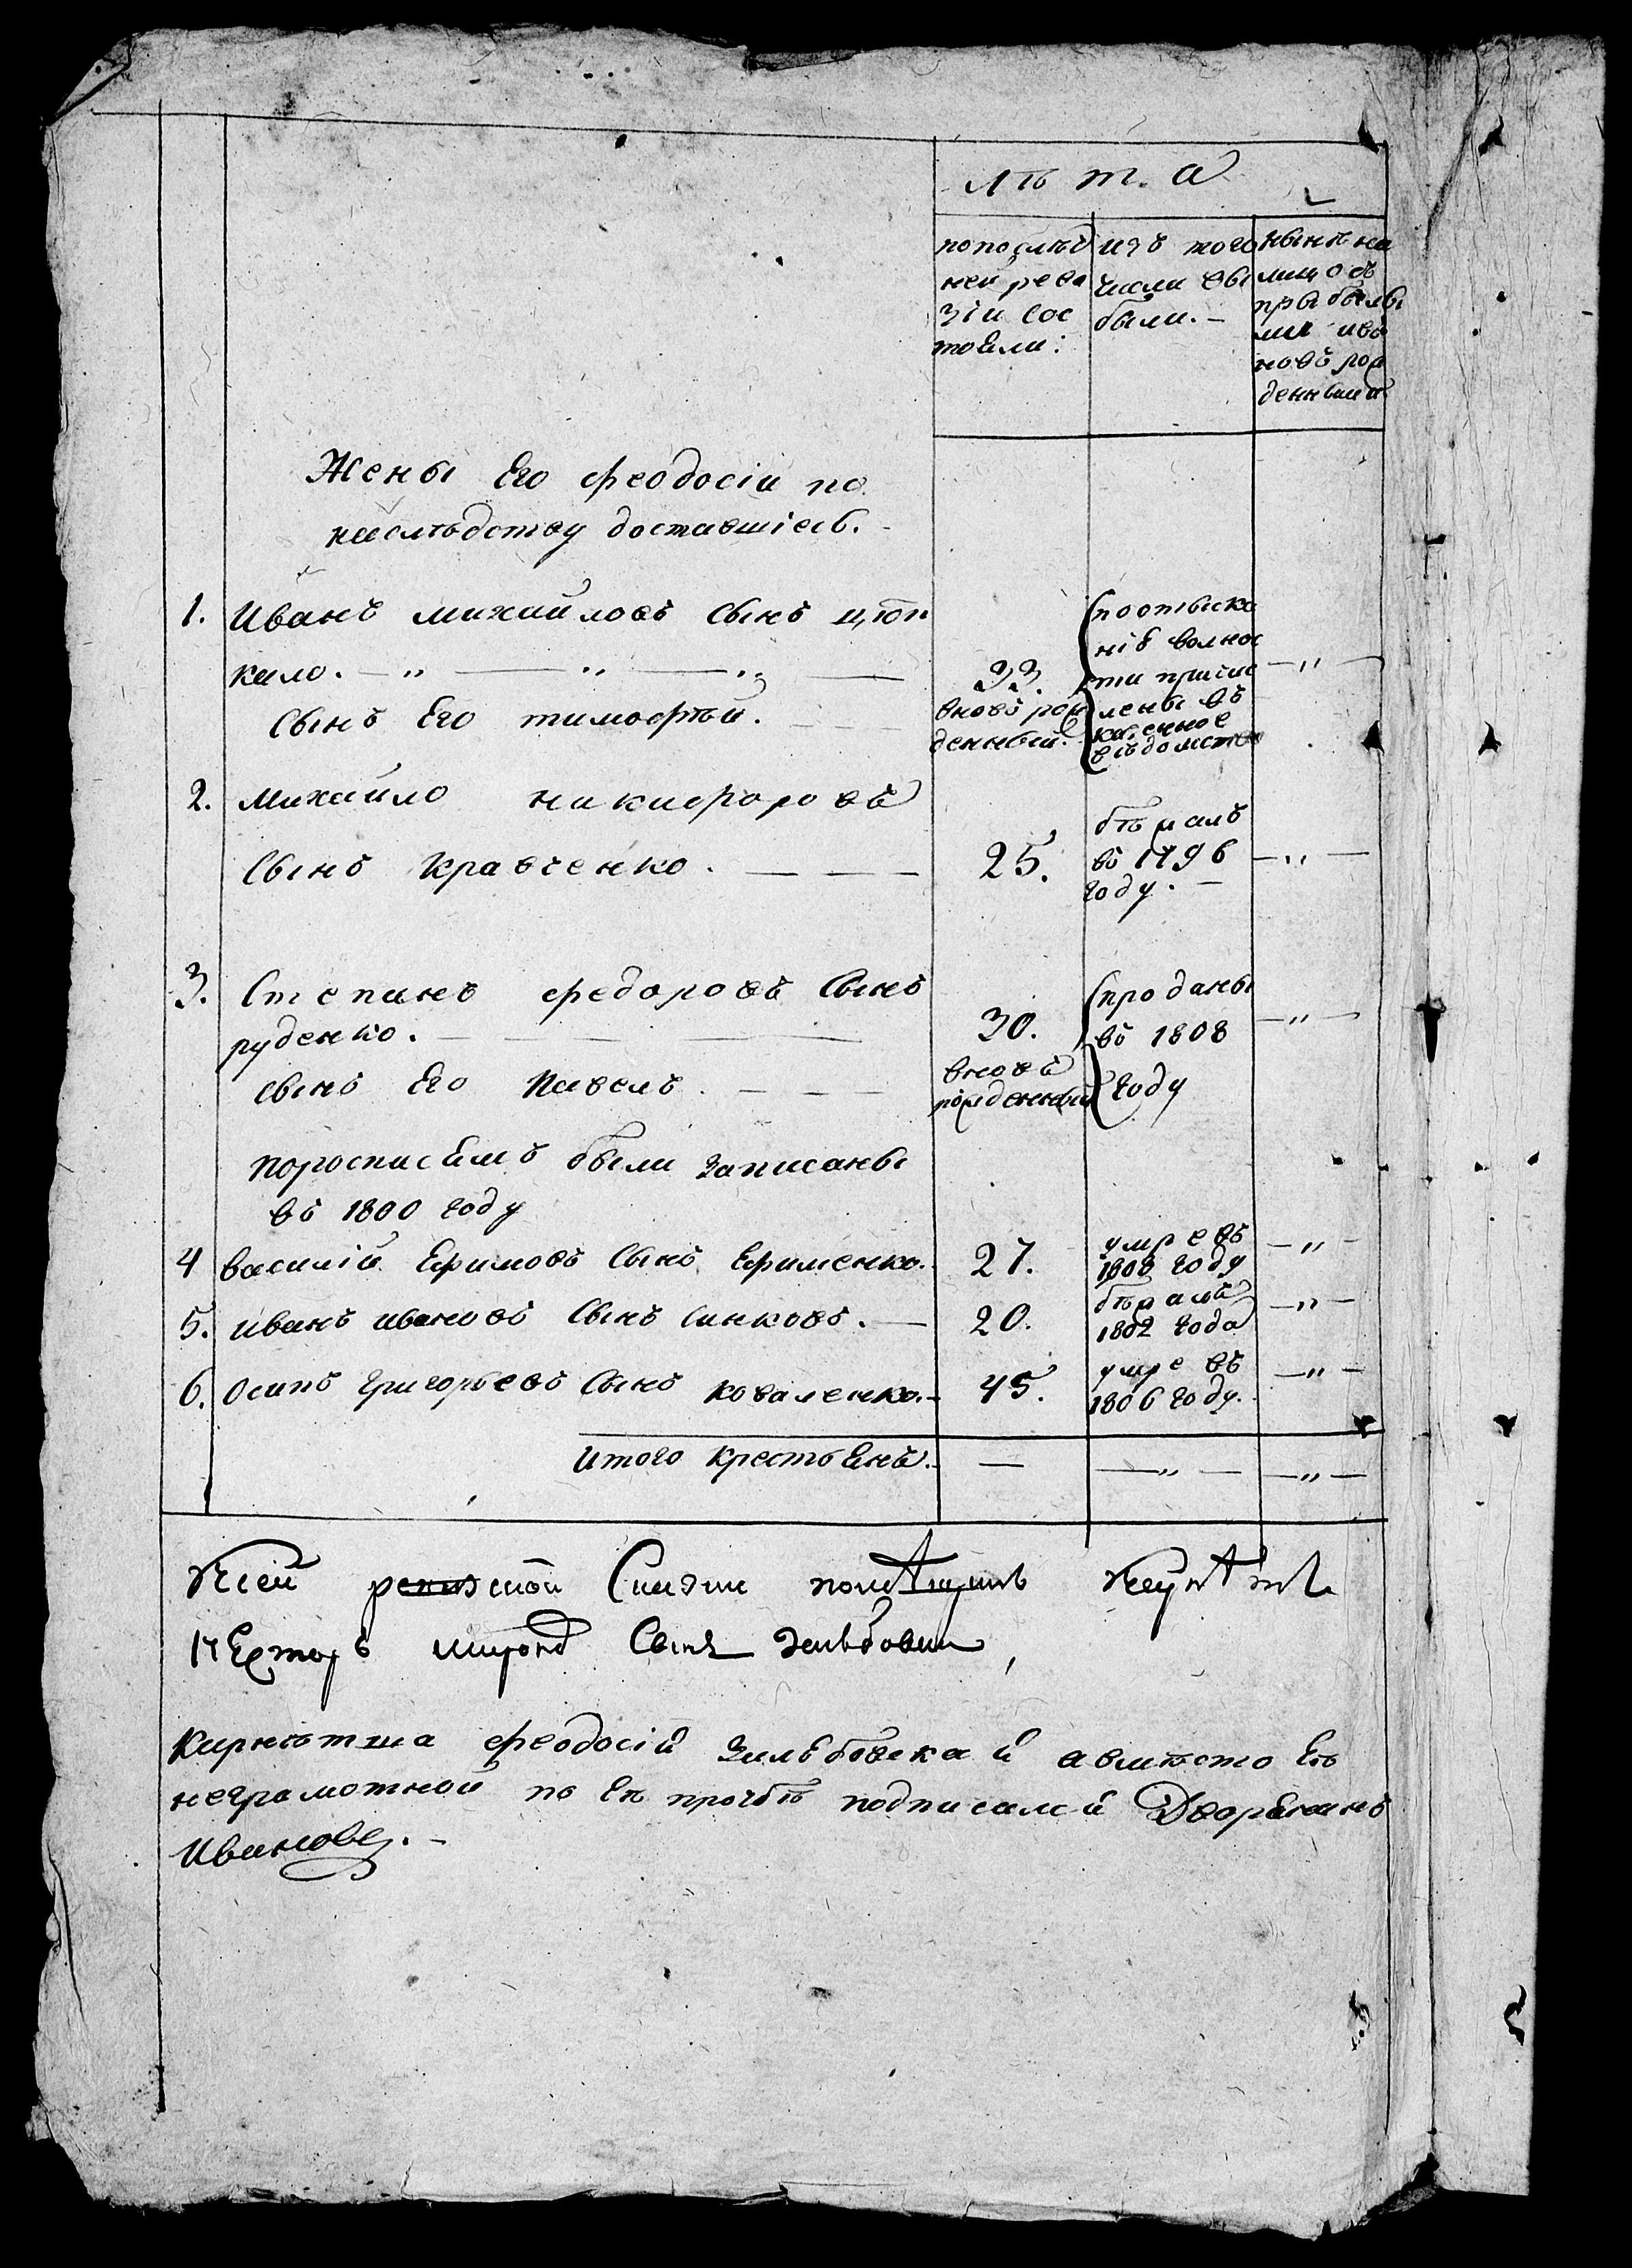 лѣта
попослѣд
ней реви
зіи сос
тоѣли:
изъ того
числа вы
были. —
нынѣ на
лицо съ
прыбылы
ми ивъ
новъ рож
денными
Жены Его Феодосіи по
наслѣдству доставшіесь. -
1. Иванъ михайловъ Сынъ цюп
кало. — „ — „ — „ —
33.
поотыска
ніѣ волнос
ти причис
лены въ
казенное
вѣдомство
— „ —
Сынъ Его тимофѣй. — —
вновь рож
денный.
2. Михайло никифоровъ
Сынъ Кравченко. — — —
25.
бѣжалъ
въ 1796
году. —
— „ —
3. Степанъ федоровъ Сынъ
руденко. — — — —
30.
проданы
въ 1808
году
— „ —
сынъ Его Павелъ. — — —
вновь
рожденный
поросписѣмъ были записаны
въ 1800 году
4 василій Ефимовъ Сынъ Ефименко.
27.
умре въ
1808 году
— „ —
5. иванъ ивановъ Сынъ Синковъ. —
20.
бѣжалъ
1802 года
— „ —
6. Осипъ Григорьевъ Сынъ коваленко. -
45.
умре въ
1806 году.
— „ —
Итого крестьѣнъ. — — „ — — „ —
Ксей ревизской Сказки
Сынъ
Феодосій авмѣсто Еѣ
неграмотной по Еѣ прозбѣ подписалсй Дворѣнинъ
Ивановъ. —